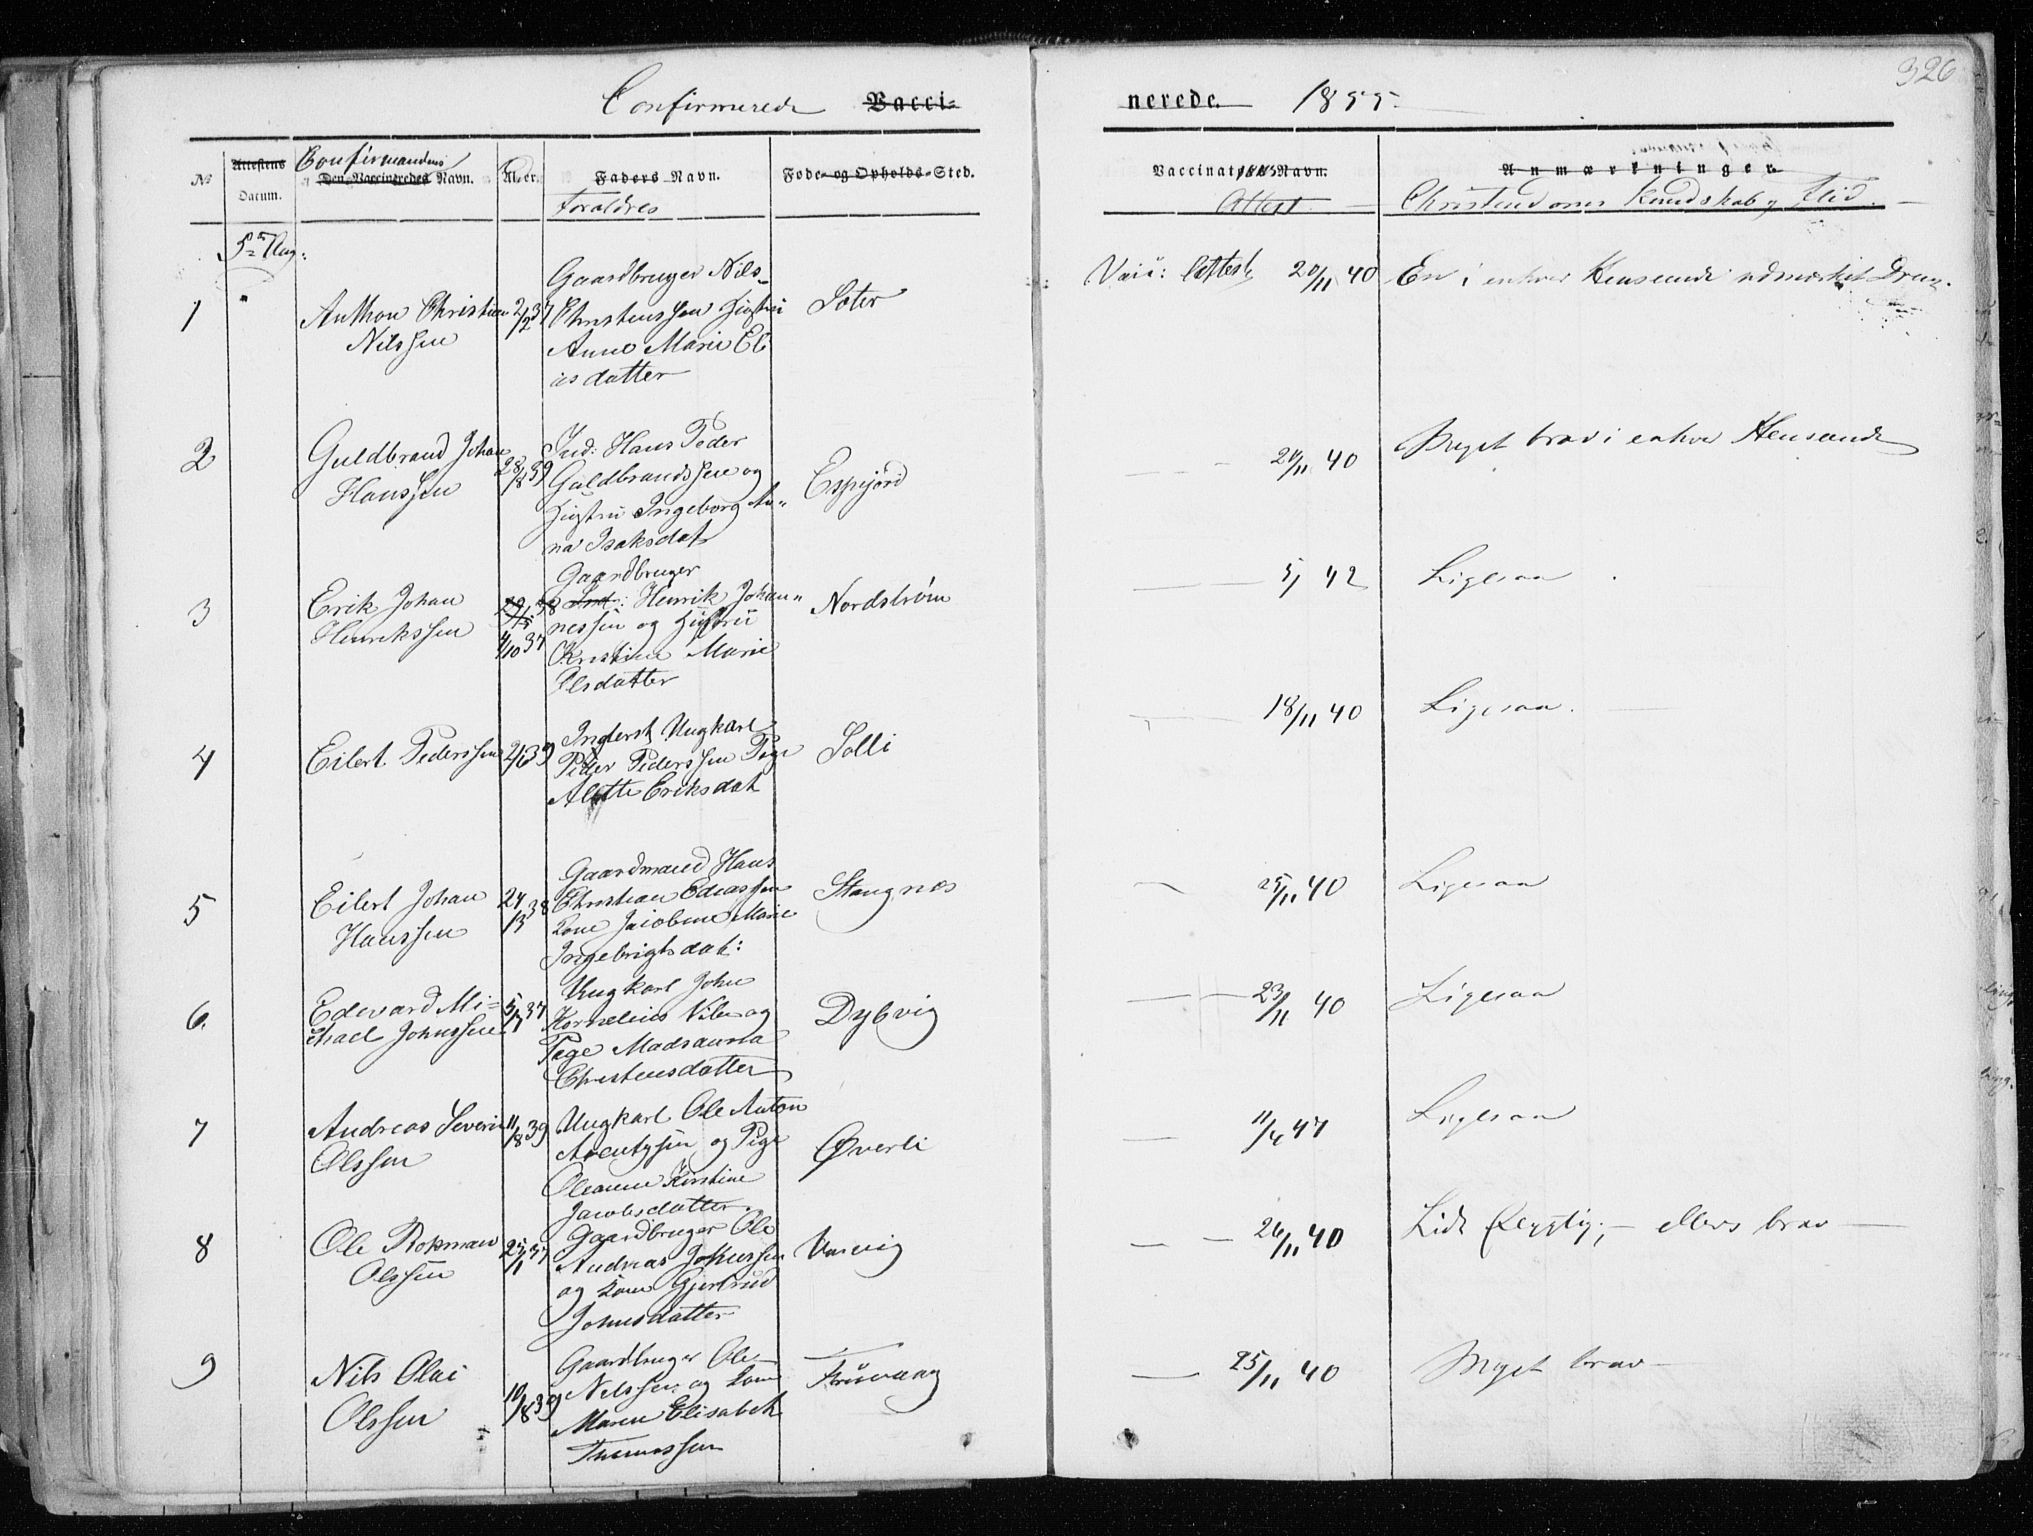 326
Confirmerede Vacci- nerede 1855
No
Attestens
Datum.
Confirmandens
Den Vaccineredes Navn.
Alder.
Faders Navn.
Foraldres
Føde- og Opholds-Sted.
Vaccinat Navn.
Attest
Anmærkninger.
Christendoms Kundskab og Flid.
5te Aug.
1
Anthon Christian
Nilssen
2/2 37
Gaardbruger Nils
Christenssen Hustru
Anne Marie El
iasdatter
Soter
Attest 20/11 40
En i enhver Henseende udmærket Dreng.
2
Guldbrand Johan
Hanssen
28/8 39
Ind: Hans Peder
Guldbrandssen og
Hustru Ingeborg An-
na Isaksdat
Espejord
20/11 40
Meget brav i enhver Henseende
3
Erik Johan
Henrikssen
29/5 38
4/10 37
Gaardbruger
Ind: Henrik Johan-
nessen og Hustru
Kristine Marie
Olsdatter
Nordstrøm
42
Ligesaa
4
Eilert Pederssen
39
Inderst Ungkarl
Peder Pederssen Pige
Alette Eriksdat
Solli
18/11 40
Ligesaa.
5
Eilert Johan
Hanssen
38
Gaardmand Hans
Christian Ediassen
Kone Jacobine Marie
Ingebrigtsdat:
Stangnes
25/11 40
Ligesaa
6.
Edevard Mi-
chael Johnssen
5/7 37
Ungkarl John
Kornelius Nils og
Pige Madsanna
Christensdatter
Dybvig
23/11 40
Ligesaa
7
Andreas Severin
Olssen
11/8 39
Ungkarl Ole Anton
Arentzsen og Pige
Oleanne Kirstine
Jacobsdatter
Øverli
11/4 47
Ligesaa
8
Ole Rokman
Olssen
25/1 37
Gaardbruger Ole
Andreas Johnssen
og Kone Gjertrud
Johnsdatter
Vasvig
26/11 40
Lidt flygtig; - ellers brav
9
Nils Olai
Olssen
10/8 39
Gaardbruger Ole
Nilssen og Kone
Maren Elisabeth
Thomassen
Trøivaag
25/11 40
Meget brav